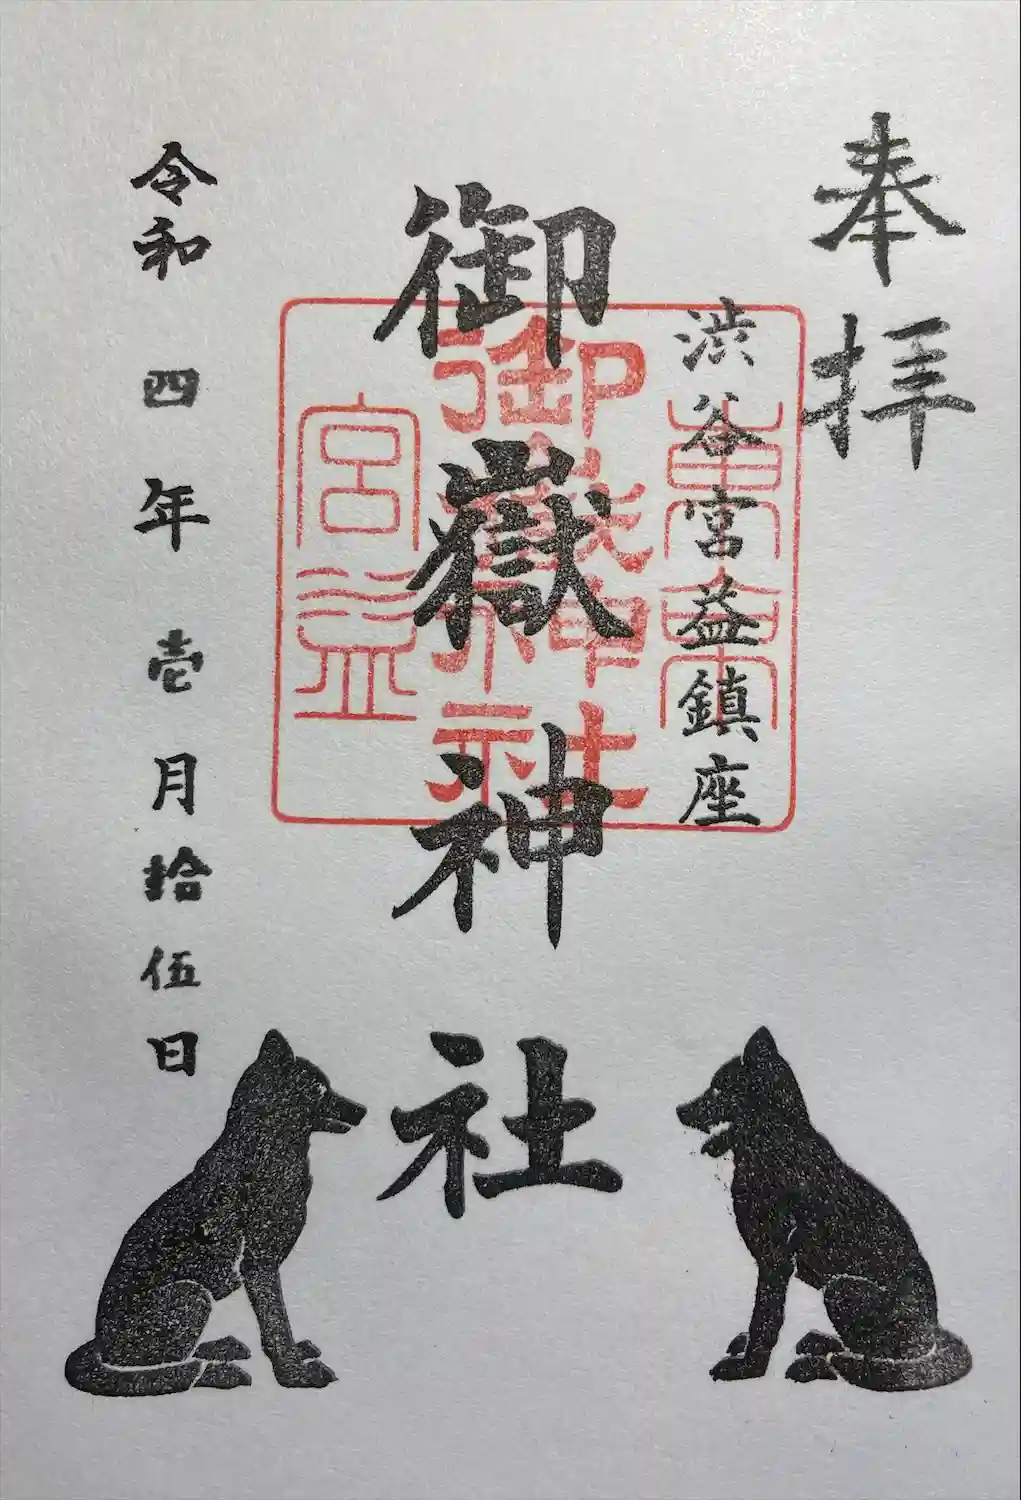 奉拝
渋谷宮益鎮座
御嶽神社
令和四年壱月拾伍日
東京
御嶽神社
宮益